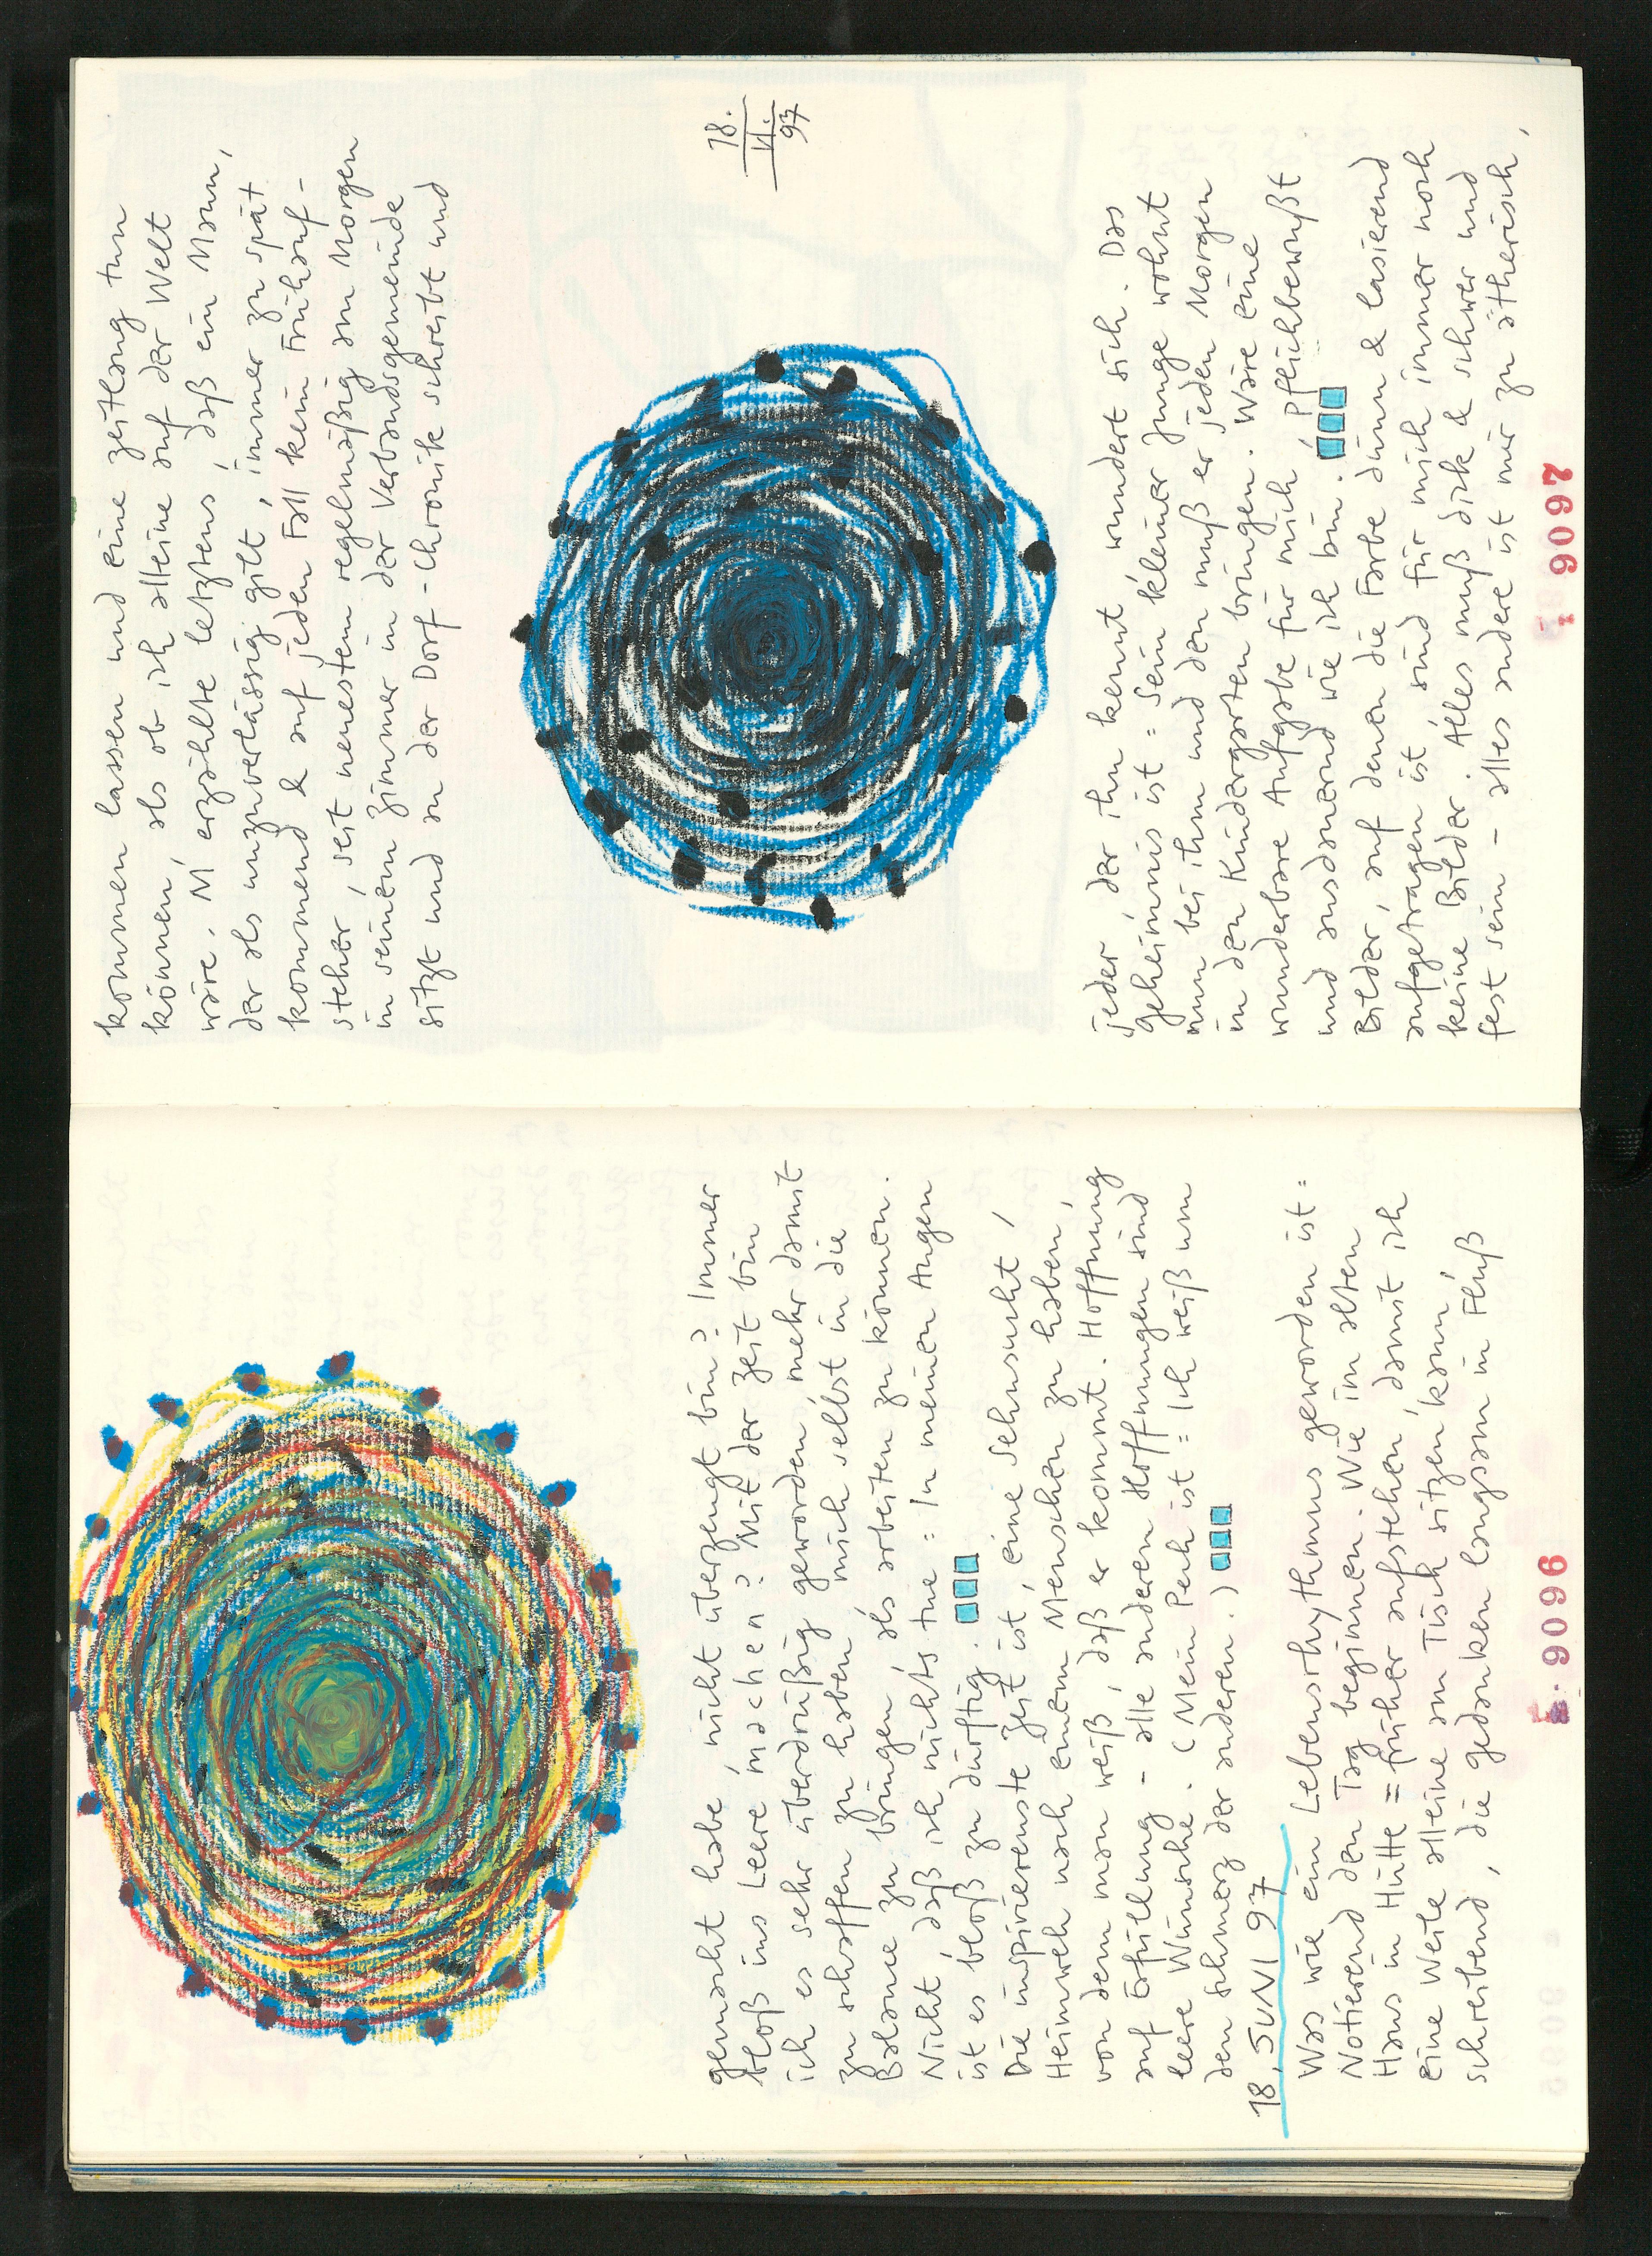 gemacht habe, nicht überzeugt bin? Immer
bloß ins Leere machen? Mit der Zeit bin
ich es sehr überdrüßig geworden, mehr damit
zu schaffen zu haben mich selbst in die
Balance zu bringen, als arbeiten zu können.
Nicht, daß ich nichts tue = In meinen Augen
ist es bloß zu dürftig.
Die inspirierenste Zeit ist, eine Sehnsucht,
Heimweh nach einem Menschen zu haben,
von dem man weiß, daß er kommt. Hoffnung
auf Erfüllung - alle anderen Hoffnungen sind
leere Wünsche. (Mein Pech ist = Ich weiß um
den Schmerz der anderen.)
18. JUNI 97
Was wie ein Lebensrhythmus geworden ist =
Notierend den Tag beginnen. Wie im alten
Haus in Hütte = früher aufstehen, damit ich
eine Weile alleine am Tisch sitzen kann,
schreibend, die Gedanken langsam in Fluß
9096
kommen lassen und eine Zeitlang tun
können, als ob ich alleine auf der Welt
wäre. M erzählte letztens, daß ein Mann,
der als unzuverlässig gilt, immer zu spät
kommend & auf jeden Fall kein Frühauf-
steher, seit neuestem regelmäßig am Morgen
in seinem Zimmer in der Verbandsgemeinde
sitzt und an der Dorf-Chronik schreibt und
18.
VI.
97
jeder, der ihn kennt wundert sich. Das
Geheimnis ist = Sein kleiner Junge wohnt
nun bei ihm und den muß er jeden Morgen
in den Kindergarten bringen. Wäre eine
wunderbare Aufgabe für mich, pflichbewußt
und ausdauernd wie ich bin.
Bilder, auf denen die Farbe dünn & lasierend
aufgetragen ist, sind für mich immer noch
keine Bilder. Alles muß dick & schwer und
fest sein - alles andere ist mir zu ätherisch,
9097